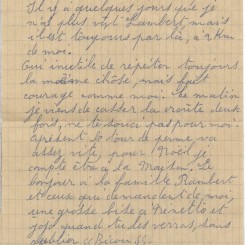 Il y a quelques jours que je
n'ai plus vu Rambert mais
il est toujours par là, à 2 Km
de moi.
Oui inutile de répéter toujours
la même chose mais faut
courage comme moi. Ce matin
je viens de casser la croûte deux
fois, ne te soucis pas pour moi.
Apresent le tour de perme va
assez vite, pour Noël je
compte être à la Maison. Le
bonjour à la famille Rambert
et ceux qui demandent de moi,
une grosse bise a Ninette et
quand tu les verras, sous